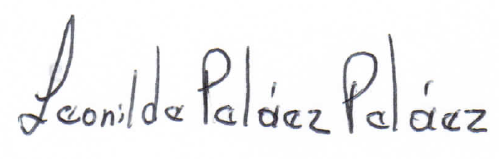 Leonilde Paláez Paláez